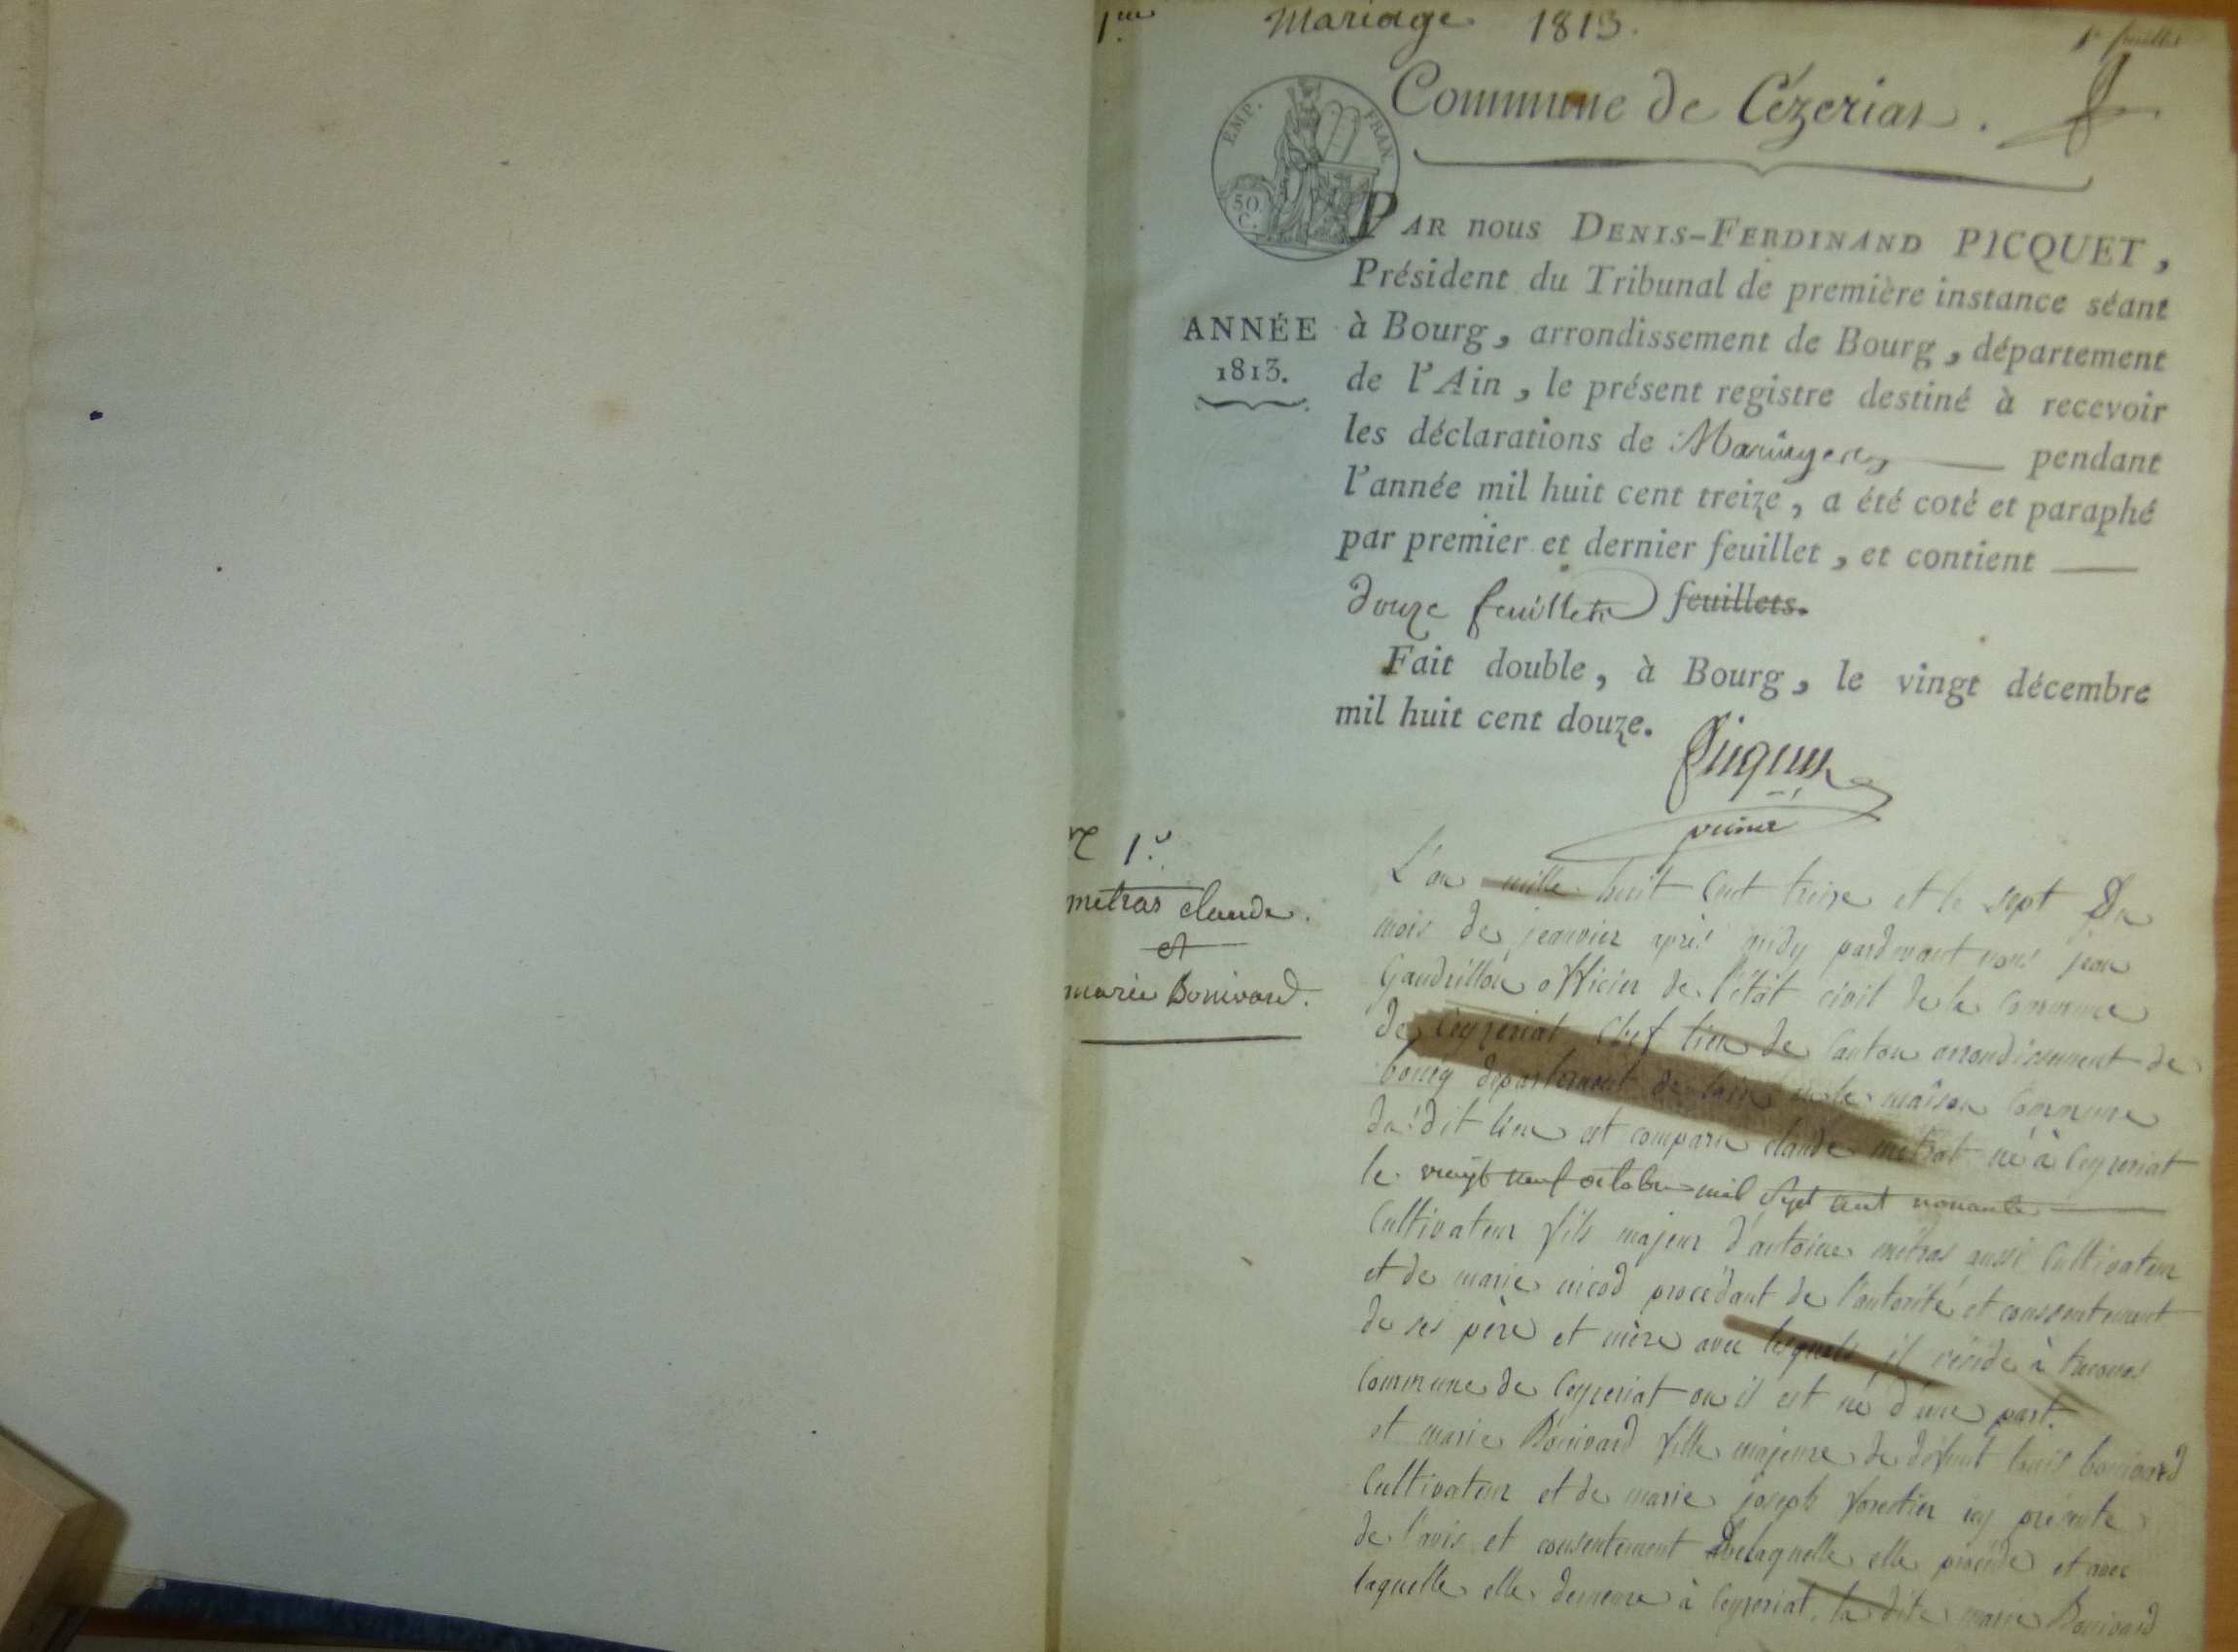 1er
Mariage 1813.
1er feuillet
Commune de Cézeriat.
EMP. FRAN.
50 C.
PAR nous DENIS-FERDINAND PICQUET,
Président du Tribunal de première instance séant
ANNÉE
1813.
à Bourg, arrondissement de Bourg, département
de l'Ain, le présent registre destiné à recevoir
les déclarations de Mariages pendant
l'année mil huit cent treize, a été coté et paraphé
par premier et dernier feuillet, et contient
douze feuillets feuillets.
Fait double, à Bourg, le vingt décembre
mil huit cent douze.
Picquet
1.er
metras claude.
et
marie Bonivard.
L'an mille huit Cent treize et le sept Du
mois de jeanvier après midy pardevant nous jean
Gaudrillon officier de l'état civil de la Commune
de Ceyzeriat Chef lieu de Canton arrondissement de
bourg departement de lain en la maison Commune
du'dit lieu est comparu claude metrat né à Ceyzeriat
le vingt neuf octobre mil Sept cent nonante
Cultivateur fils majeur d'antoine metras aussi Cultivateur
et de marie nicod procédant de l'autorité et consentement
de ses père et mère avec lesquels il réside à
Commune de Ceyzeriat ou il est né d'une part.
et marie Bonivard fille majeure de défunt louis bonivard
Cultivateur et de marie joseph forestier icy présente
de l'avis et consentement delaquelle elle procéde et avec
laquelle elle demeure à Ceyzeriat. la dite marie Bonivard